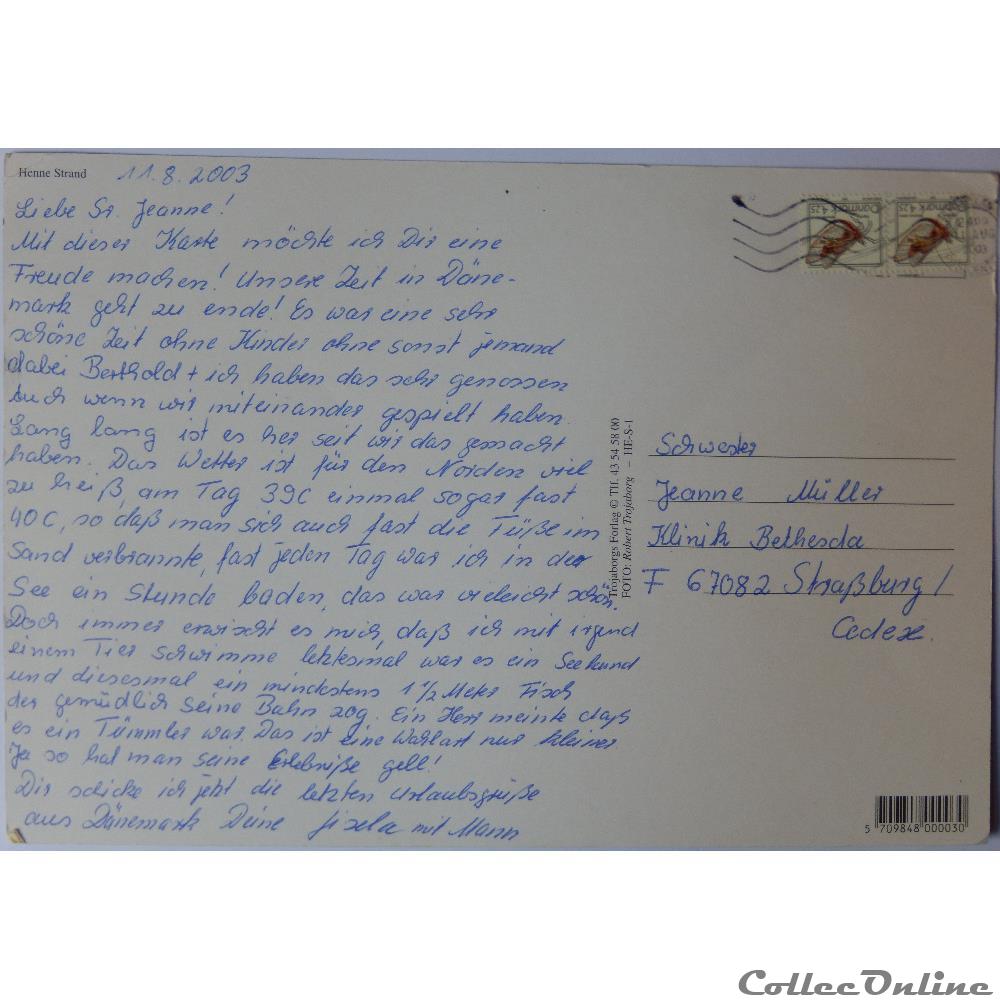 Henne Strand 11.8.2003
Liebe Sr. Jeanne!
Mit dieser Karte möchte ich Dir eine
Freude machen! Unsere Zeit in Däne-
mark geht zu ende! Es war eine sehr
schöne Zeit ohne Kinder ohne sonst jemand
dabei Berthold + ich haben das sehr genossen
auch wenn wir miteinander gespielt haben.
Lang lang ist es her seit wir das gemacht
haben. Das Wetter ist für den Norden viel
zu heiß, am Tag 39C einmal sogar fast
40C, so daß man sich auch fast die Füße im
Sand verbrannte, fast jeden Tag war ich in der
See ein Stunde baden, das war vieleicht schön.
Doch immer erwischt es mich, daß ich mit irgend
einem Tier schwimme letztesmal war es ein Seehund
und diesesmal ein mindestens 1 1/2 Meter Fisch
der gemüdlich seine Bahn zog. Ein Herr meinte daß
es ein Tümmler war. Das ist eine Wahlart nur kleiner
Ja so hat man seine Erlebniße gell!
Dir schicke ich jetzt die letzten Urlaubsgrüße
aus Dänemark Deine Gisela mit Mann
Trojaborgs Forlag © Tlf. 43 54 58 00
FOTO: Robert Trojaborg – HE-S-1
Danmark 4.25
Danmark 4.25
Schwester
Jeanne Müller
Klinik Bethesda
F 67082 Straßburg /
Cedex.
5 709848 000030
CollecOnline